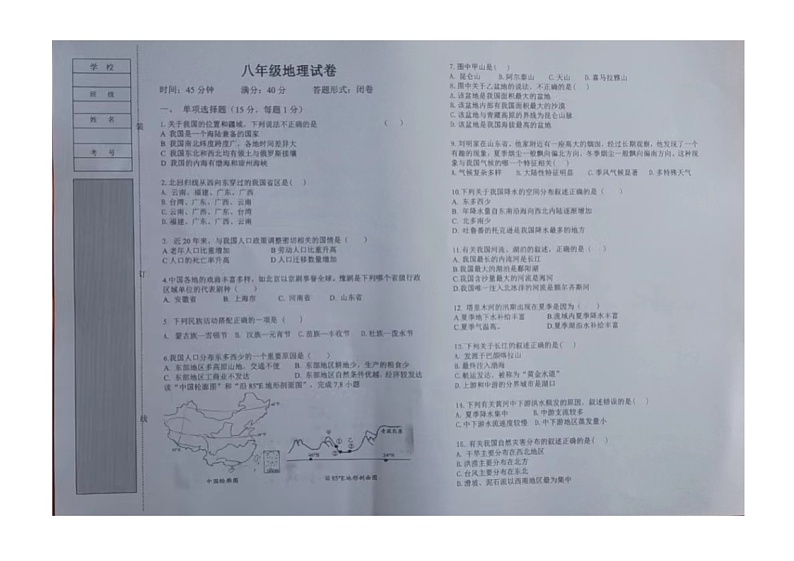 学 校
班 级
姓 名
考 号
装
订
线
八年级地理试卷
时间：45 分钟 满分：40 分 答题形式：闭卷
一、 单项选择题（15 分，每题 1 分）
1.关于我国的位置和疆域，下列说法不正确的是 （ ）
A 我国是一个海陆兼备的国家
B 我国南北纬度跨度广，各地时间差异大
C 我国东北和西北均有领土与俄罗斯接壤
D 我国的内海有渤海和琼州海峡
2.北回归线从西向东穿过的我国省区是( )
A.云南、福建、广东、广西
B.台湾、广东、广西、云南
C.云南、广西、广东、台湾
D.福建、广东、广西、云南
3. 近 20 年来，与我国人口政策调整密切相关的国情是（ ）
A 老年人口比重增加 B 劳动人口比重升高
C 人口的死亡率升高 D 人口迁移数量增加
4.中国各地的戏曲丰富多样，如北京以京剧享誉全球。豫剧是下列哪个省级行政
区域单位的代表剧种（ ）
A. 安徽省 B. 上海市 C. 河南省 D. 山东省
5. 下列民族活动搭配正确的一项是（ ）
A. 蒙古族—雪顿节 B. 汉族—元宵节 C.苗族—丰收节 D. 壮族—泼水节
6.我国人口分布东多西少的一个重要原因是（ ）
A. 东部地区多高原山地，交通不便 B. 东部地区耕地少，生产的粮食少
C. 东部地区工商业不发达 D. 东部地区自然条件优越，经济较发达
读“中国轮廓图”和“沿 85°E 地形剖面图”，完成 7,8 小题
甲
乙
青藏高原
40°N
24°N
中国轮廓图
沿 85°E 地形剖面图
7.图中甲山是( )
A.昆仑山 B.阿尔泰山 C.天山 D.喜马拉雅山
8.图中关于乙盆地的说法，不正确的是( )
A.该盆地是我国面积最大的盆地
B.该盆地内部有我国面积最大的沙漠
C.该盆地与青藏高原的界线为昆仑山脉
D.该盆地是我国海拔最高的盆地
9.刘明家在山东省，他家附近有一座高大的烟囱，经过长期观察，他发现了一个
有趣的现象：夏季烟尘一般飘向偏北方向，冬季烟尘一般飘向偏南方向。这种现
象与我国气候的哪一个特征相关( )
A.气候复杂多样 B.大陆性特征明显 C.季风气候显著 D.多特殊天气
10.下列关于我国降水的空间分布叙述正确的是( )
A. 东多西少
B. 年降水量自东南沿海向西北内陆逐渐增加
C. 北多南少
D. 吐鲁番的托克逊是我国降水最多的地方
11.有关我国河流、湖泊的叙述，正确的是( )
A.我国最长的内流河是长江
B.我国最大的湖泊是鄱阳湖
C.我国含沙量最大的河流是黄河
D.我国唯一注入北冰洋的河流是额尔齐斯河
12. 塔里木河的汛期出现在夏季是因为（ ）
A.夏季地下水补给丰富 B.流域内夏季降水丰富
C.夏季气温高。 D.夏季湖泊水补给丰富
13.下列关于长江的叙述正确的是( )
A. 发源于巴颜喀拉山
B.最终注入渤海
C.航运发达，被称为“黄金水道”
D.上游和中游的分界城市是湖口
14.下列有关黄河中下游洪水频发的原因，叙述错误的是( )
A. 夏季降水集中 B.中游支流较多
C.中下游水流速度较慢 D.中下游地区蒸发量小
15.有关我国自然灾害分布的叙述正确的是( )
A. 干旱主要分布在西北地区
B.洪涝主要分布在北方
C.台风主要分布在东北
D.滑坡、泥石流以西南地区最为集中